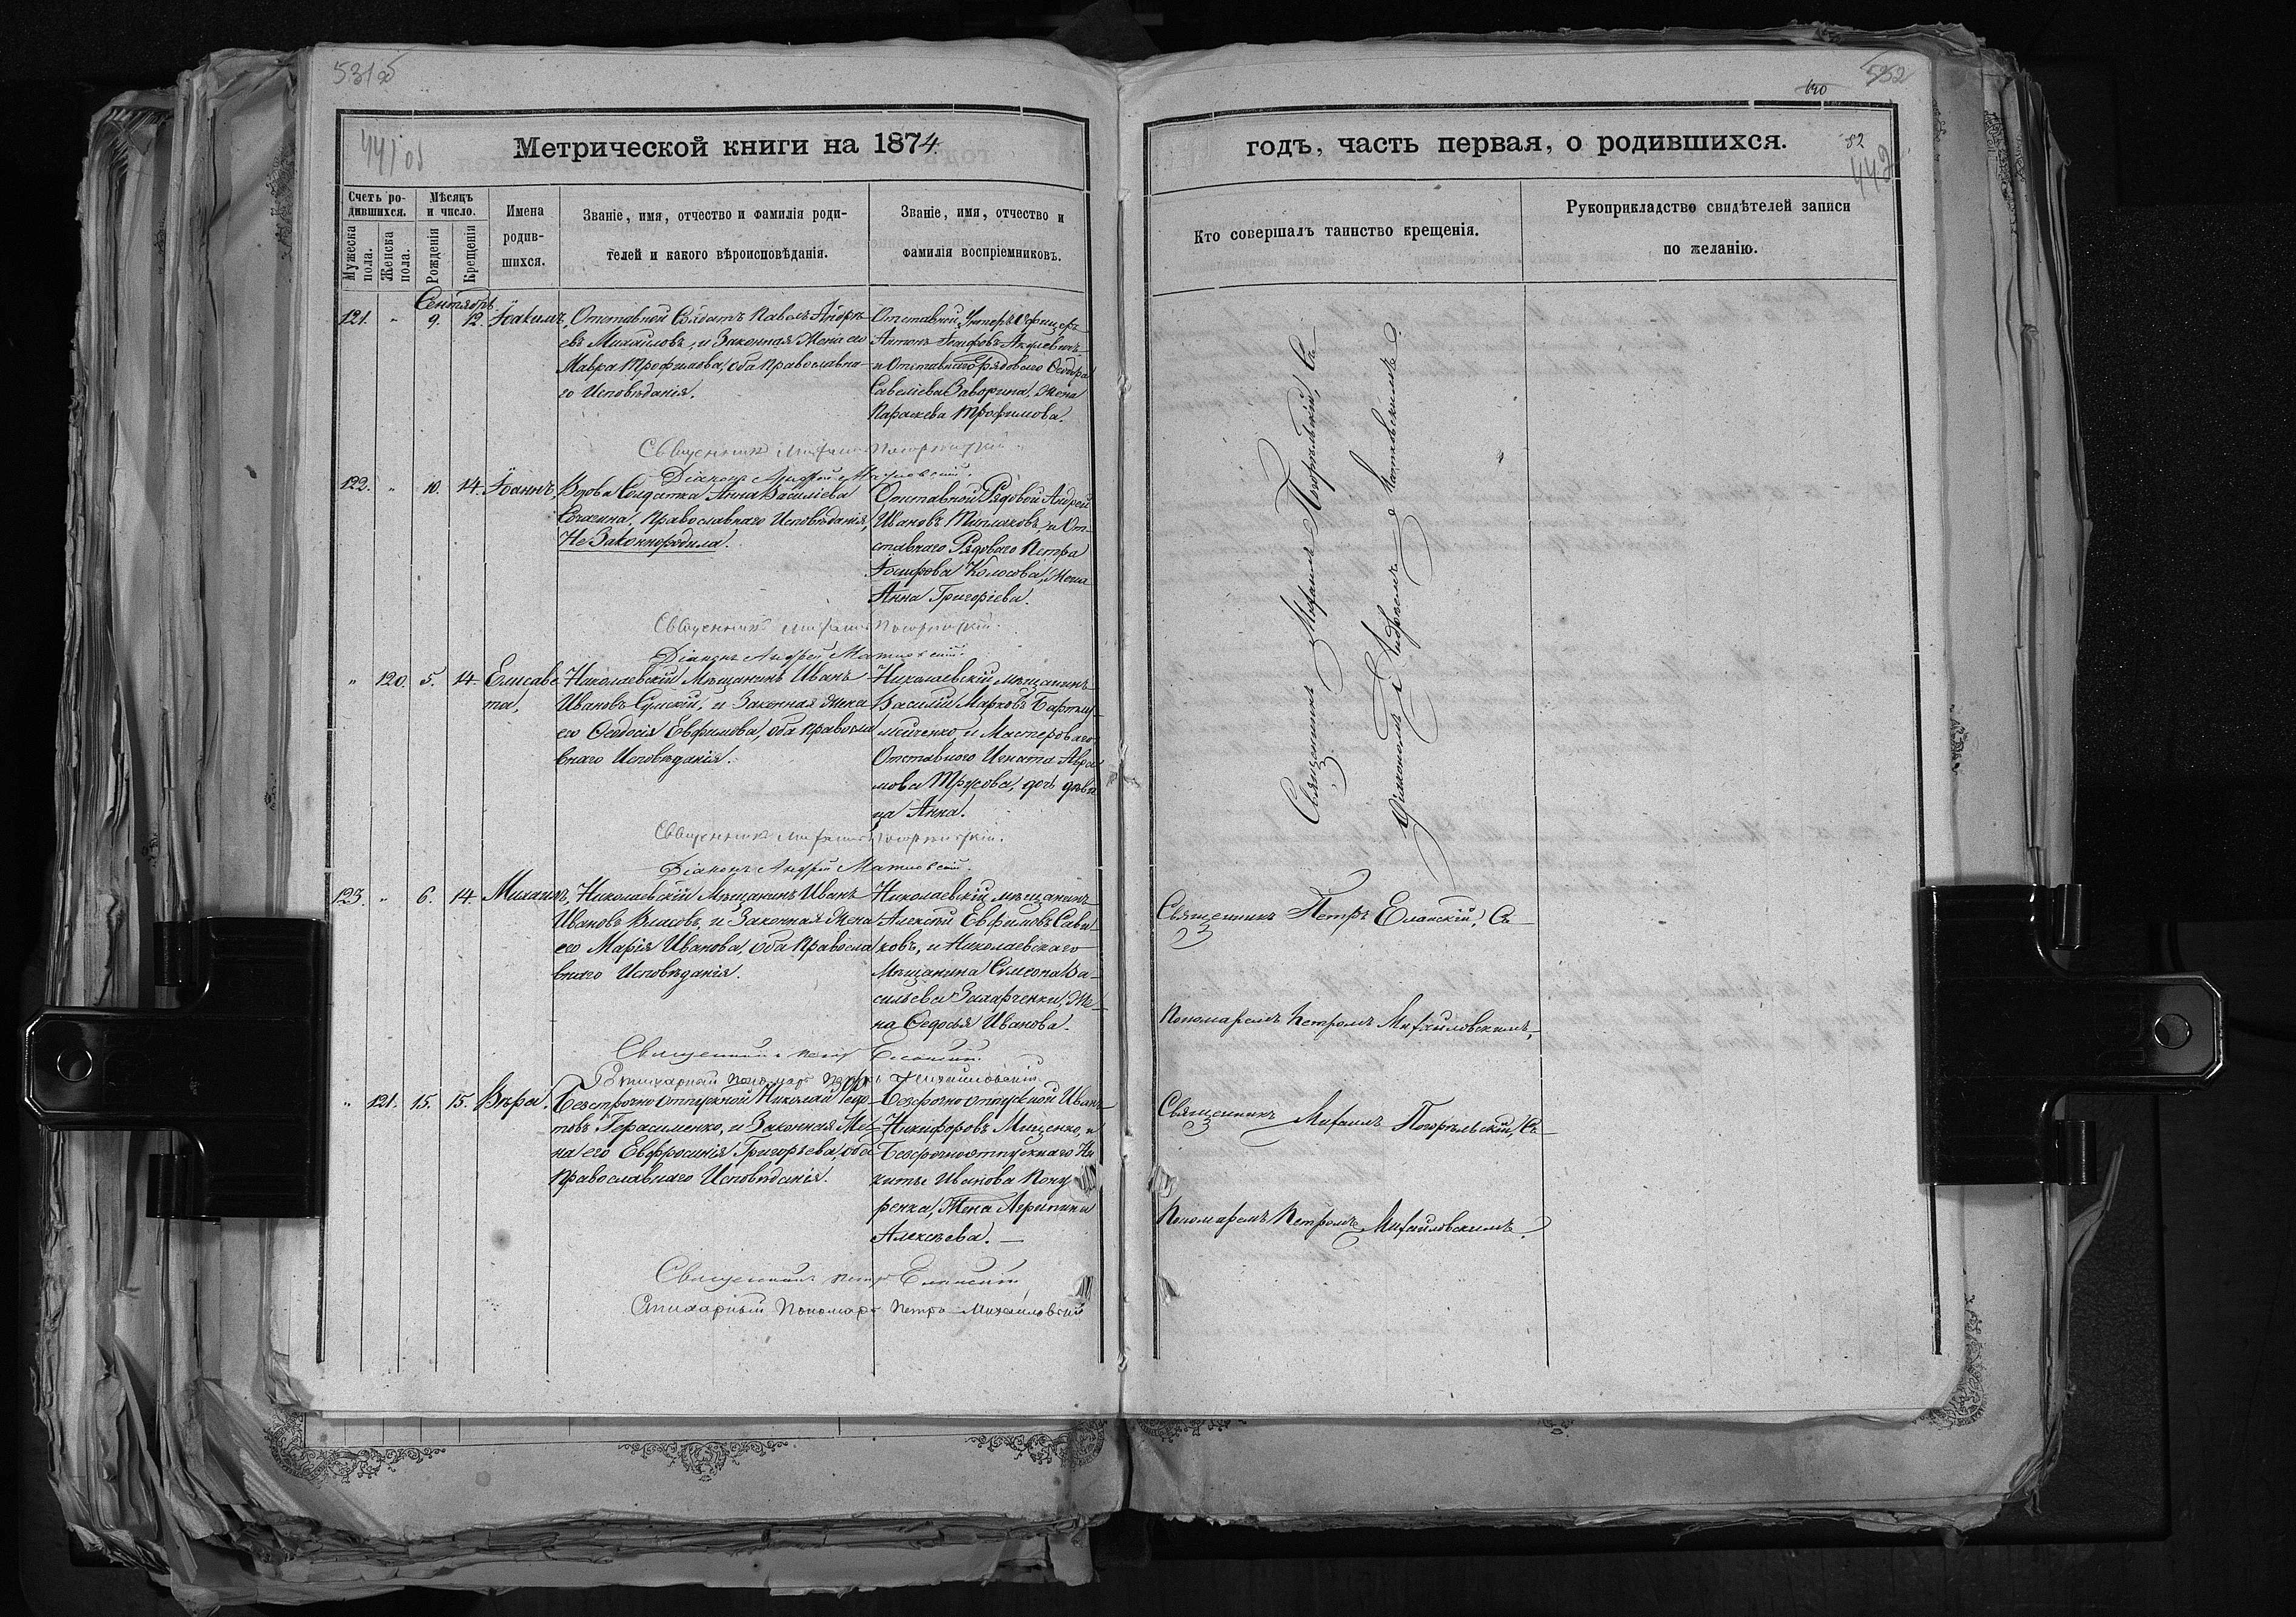 531 об
Метрической книги на 1874
441 об
Счетъ ро-
дившихся.
Мѣсяцъ
и число.
Имена
родив-
шихся.
Званіе, имя, отчество и фамилія роди-
телей и какого вѣроисповѣданія.
Званіе, имя, отчество и
фамилія воспріемниковъ.
Мужеска
пола.
Женска
пола.
Рожденія
Крещенія
Сентябрь
121. " 9. 12. Іоакимъ, Отставной Солдатъ Павелъ Андре-
евъ Михайловъ, и Законная Жена его
Мавра Трофимова, оба Православна-
го Исповѣданія.
Отставной Унтеръ Офицеръ
Антонъ Іосифовъ
и Отставнаго Рядоваго Ѳеодора
Савеліева Заворина, Жена
Параскева Трофимова.
Священникъ Михаилъ Погорѣльскій.
Діаконъ Андрей
122. " 10. 14. Іоаннъ, Вдова Солдатка Анна Василіева
Православнаго Исповѣданія,
Не Законнородила.
Отставной Рядовой Андрей
Ивановъ Типляковъ и От-
ставнаго Рядоваго Петра
Іосифова Колосова, Жена
Анна Григоріева.
Священникъ Михаилъ Погорѣльскій.
Діаконъ Андрей
" 120. 5. 14. Елисаве-
та, Николаевскій Мѣщанинъ Иванъ
Ивановъ Сумскій, и Законная Жена
его Ѳеодосія Евфимова, оба Правосла
внаго Исповѣданія.
Николаевскій мѣщанинъ
Василій Марковъ
и Мастероваго
Отставнаго Игната Авра
мова Трусова, дочь дѣви
ца Анна.
Священникъ Михаилъ Погорѣльскій.
Діаконъ Андрей
123. " 6. 14. Михаилъ, Николаевскій Мѣщанинъ Иванъ
Ивановъ Власовъ, и Законная Жена
его Марія Иванова, оба Правосла
внаго Исповѣданія.
Николаевскій мѣщанинъ
Алексѣй Евфимовъ Сави
ковъ, и Николаевскаго
Мѣщанина Симеона Ва-
сильева Захарченки, Же-
на Ѳедосья Иванова.
Священникъ Петръ Еланскій
Стихарный пономарь Петръ Михайловскій
" 121. 15. 15. Вѣра. Безсрочно Отпускной Николай Ѳедо-
товъ Герасименко, и Законная Же-
на его Евфросинія Григорьева, оба
Православнаго Исповѣданія.
Безсрочно отпускной Иванъ
Никифоровъ Мищенко, и
Безсрочноотпускнаго Ни
киты Иванова
Жена Агрипина
Алексѣева.
Священникъ Петръ Еланскій
Стихарный Пономарь Петръ Михайловскій
532
140
годъ, часть первая, о родившихся.
82
442
Кто совершалъ таинство крещенія.
Рукоприкладство свидѣтелей записи
по желанію.
Священникъ Михаилъ Погорѣльскій, Съ
Діакономъ Андреемъ
Священникъ Петръ Еланскій, Съ
Пономаремъ Петромъ Михайловскимъ,
Священникъ Михаилъ Погорѣльскій, Съ
Пономаремъ Петромъ Михайловскимъ.